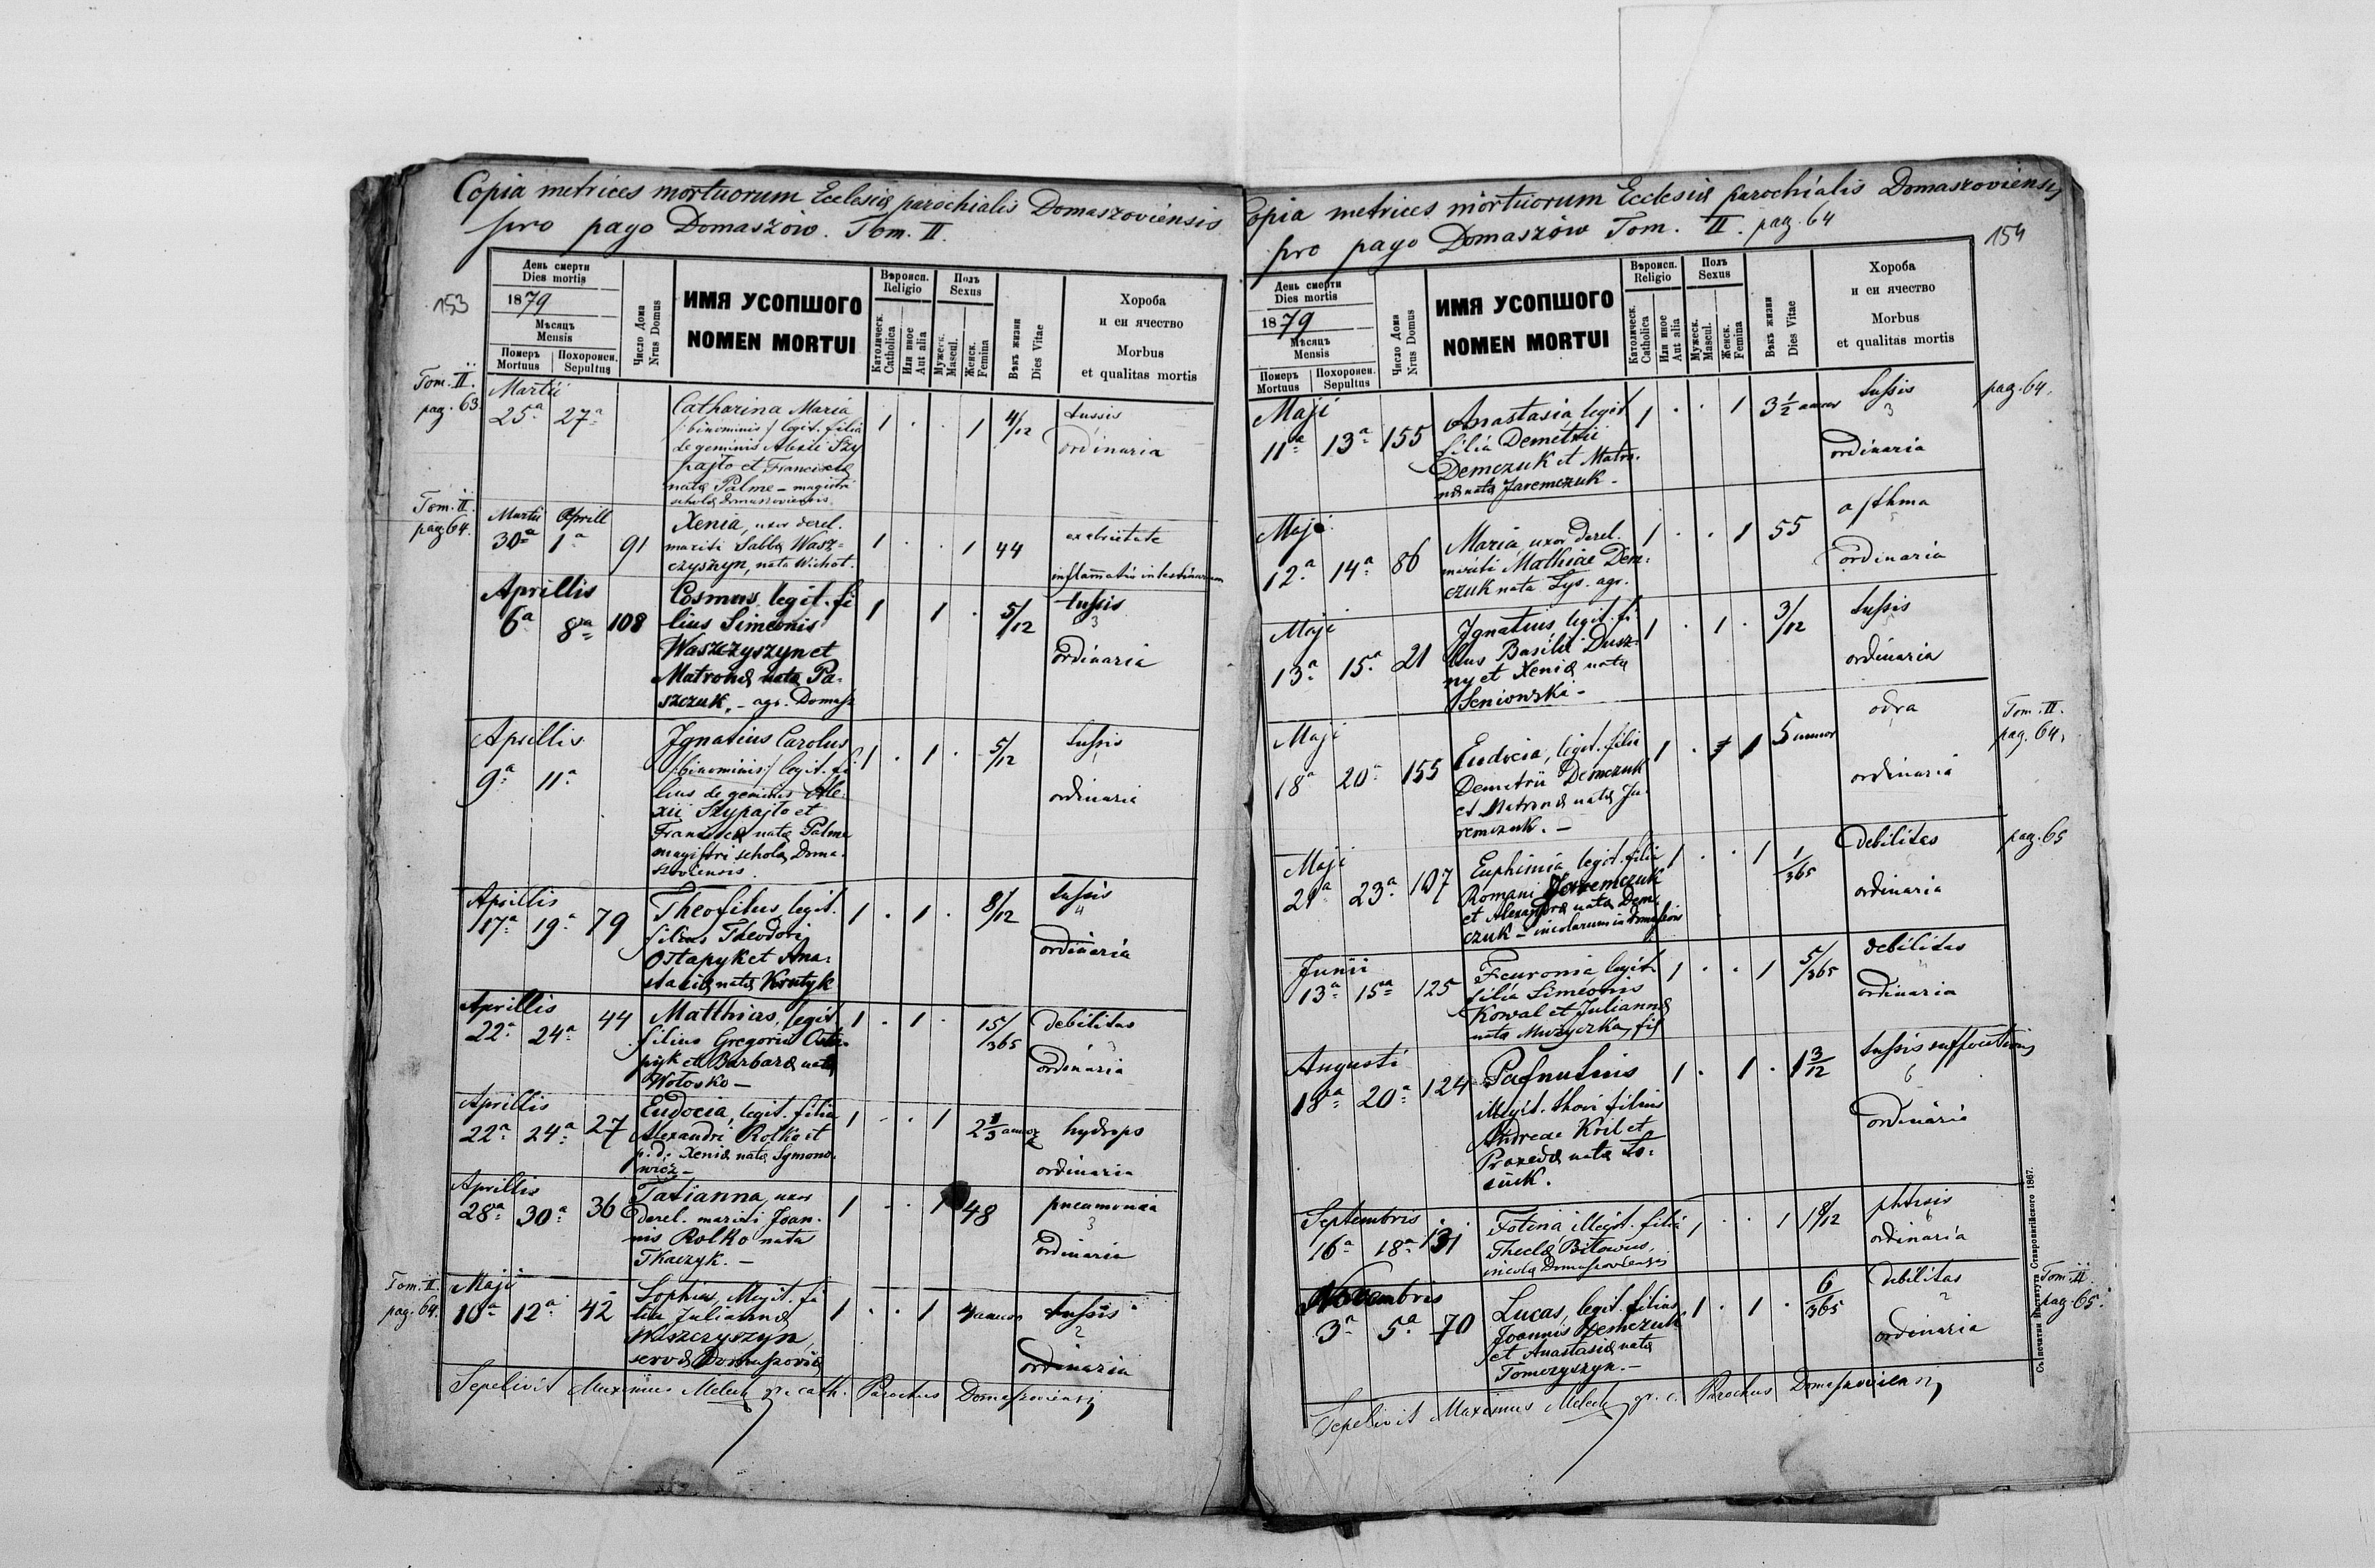 Copia metrices mortuorum Ecclesiæ parochialis Domaszoviensis
pro pago Domaszów. Tom. II.
153
День смерти
Dies mortis
1879
Мѣсяцъ
Mensis
Померъ
Mortuus
Похоронен.
Sepultus
Число Дома
Nrus Domus
ИМЯ УСОПШОГО
NOMEN MORTUI
Вѣроисп.
Religio
Католическ.
Catholica
Или иное
Aut alia
Полъ
Sexus
Мужеск.
Mascul.
Женск.
Femina
Вѣкъ жизни
Dies Vitae
Хороба
и еи ячество
Morbus
et qualitas mortis
Tom. II.
pag. 63.
Martii
25a 27a
Catharina Maria
/:binominis:/ legit. filia
de geminis Alexii Szy
pajło et Franciscæ
natæ Palme – magistri
scholæ Domaszoviensis.
1 . . 1 4/12
tussis
ordinaria
Tom. II.
pag. 64.
Martii Aprill
30a 1a 91
Xenia, uxor derel.
mariti Sabbæ Wasz-
czyszyn, nata Wichot.
1 . . 1 44
ex ebrietate
inflammatio intestinorum
Aprillis
6a 8a 108
Cosmus, legit. fi
lius Simeonis
Waszczyszyn et
Matronæ natæ Pa-
szczuk, – agr. Domasz
1 1 . 5/12
tussis
3
ordinaria
Aprillis
9a 11a
Ignatius Carolus
/:binominis:/ legit. fi
lius de geminis Ale-
xii Szypajło et
Franciscæ natæ Palme
magistri scholæ Doma-
szoviensis.
1 . 1 . 5/12
tussis
ordinaria
Aprillis
17a 19a 79
Theofilus, legit.
filius Theodori
Ostapyk et Ana-
staciæ natæ Kratyk
1 . 1 . 8/12
tussis
4
ordinaria
Aprillis
22a 24a 44
Matthias, legit
filius Gregorii Osta-
pyk et Barbaræ natæ
Wołosko –
1 . 1 . 15/365
debilitas
ordinaria
Aprillis
22a 24a 27
Eudocia, legit. filia
Alexandri Rolko et
p. d. Xeniæ natæ Symono-
wicz –
1 . . 1
hydrops
ordinaria
Aprillis
28a 30a 36
Tatianna, uxor
derel. mariti Joan-
nis Rolko nata
Tkaczyk. –
1 . . 1 48
pneumonia
3
ordinaria
Tom. II.
pag. 64.
Maji
10a 12a 42
Sophia, illegit. fi
lia Juliannæ
Waszczyszyn,
servæ Domaszoviæ
1 . . 1 4 annor
tussis
2
ordinaria
Sepelivit Maximus Melech gr. cath. Parochus Domaszoviensis
Copia metrices mortuorum Ecclesiæ parochialis Domaszoviensis
pro pago Domaszów Tom. II. pag. 64
154
День смерти
Dies mortis
1879
Мѣсяцъ
Mensis
Померъ
Mortuus
Похоронен.
Sepultus
Число Дома
Nrus Domus
ИМЯ УСОПШОГО
NOMEN MORTUI
Вѣроисп.
Religio
Католическ.
Catholica
Или иное
Aut alia
Полъ
Sexus
Мужеск.
Mascul.
Женск.
Femina
Вѣкъ жизни
Dies Vitae
Хороба
и еи ячество
Morbus
et qualitas mortis
Maji
11a 13a 155
Anastasia legit
filia Demetrii
Demczuk et Matro-
næ natæ Jaremczuk –
1 . . 1 3 1/2 annor
tussis
3
ordinaria
pag. 64.
Maji
12a 14a 86
Maria, uxor derel.
mariti Mathiae Dem-
czuk nata Lys. agr.
1 . . 1 55
asthma
ordinaria
Maji
13a 15a 21
Ignatius, legit. fi-
lius Basilii Dusz-
ny et Xeniæ natæ
Seniowski –
1 . 1 . 3/12
tussis
ordinaria
Maji
18a 20a 155
Eudocia, legit. filia
Demetrii Demczuk
et Matronæ natæ Ja-
remczuk. –
1 . 1 5 annor
odra
ordinaria
Tom. II.
pag. 64.
Maji
21a 23a 107
Euphimia legit. filia
Romani Jaremczuk
et Alexandræ natæ Dem-
czuk – incolarum in Domaszów
1 . . 1 1/365
debilitas
ordinaria
pag. 65
Junii
13a 15a 125
Feuronia legit.
filia Simeonis
Kowal et Juliannæ
natæ Muzyczka,
1 . . 1 5/365
debilitas
ordinaria
Augusti
18a 20a 124
Pafnutius
illegit. thori filius
Andreae Kril et
Praxedæ natæ Lo-
siuk.
1 . 1 . 1 3/12
tussis suffocations
6
ordinaria
Septembris
16a 18a 131
Fotina illegit. filia
Theclæ Bitowus,
incolæ Domaszoviensis
1 . . 1 1 8/12
phtisis
6
ordinaria
Novembris
3a 5a 70
Lucas, legit. filius
Joannis Demczuk
et Anastasiæ natæ
Tomczyszyn. –
1 . 1 . 6/365
debilitas
2
ordinaria
Tom. II.
pag. 65.
Sepelivit Maximus Melech gr. c. Parochus Domaszoviensis
Съ печатни Института Ставропигійского 1867.